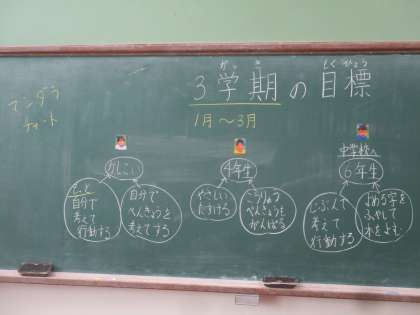 がっき
もくひょう
3学期の目標
1月～3月
マンダラ
チャート
かしこい
4年生
中学校へ
6年生
もっと
自分で
考えて
行動する
自分で
べんきょうを
考えてする
やさしい
たすける
べんきょうも
がんばる
じぶんで
考えて
行動する
ふやして